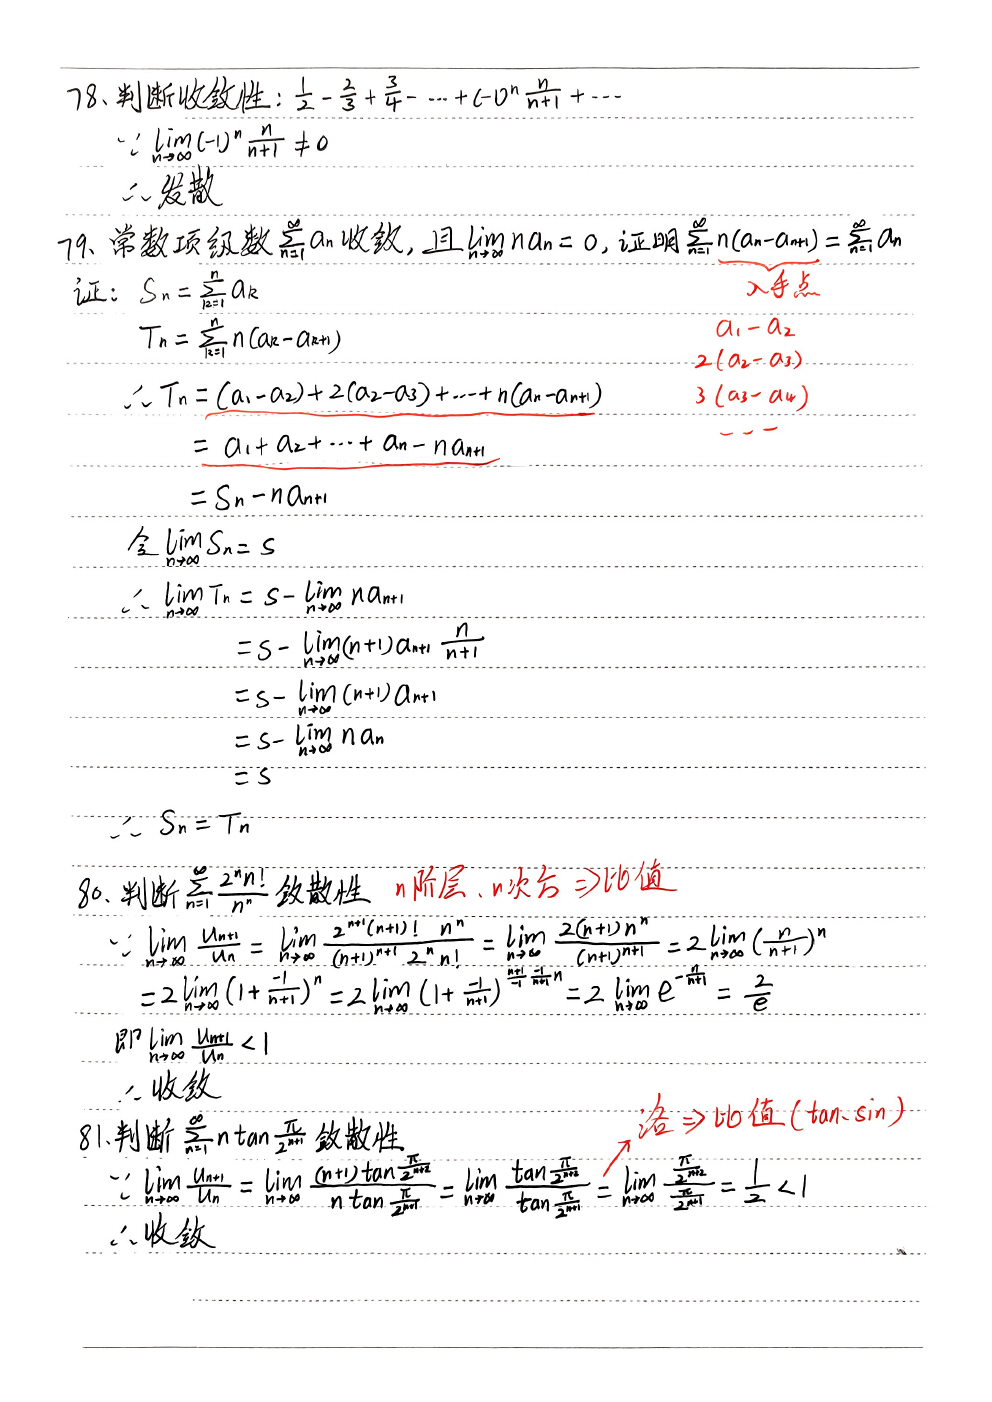 78、判断收敛性: 1/2 - 2/3 + 3/4 - ··· + (-1)ⁿ n/(n+1) + ···
∵ lim_{n→∞} (-1)ⁿ n/(n+1) ≠ 0
∴ 发散
79、常数项级数 ∑_{n=1}^{∞} aₙ 收敛, 且 lim_{n→∞} naₙ = 0, 证明 ∑_{n=1}^{∞} n(aₙ-aₙ₊₁) = ∑_{n=1}^{∞} aₙ
入手点
证: Sₙ = ∑_{k=1}^{n} aₖ
a₁-a₂
Tₙ = ∑_{k=1}^{n} n(aₖ-aₖ₊₁)
2(a₂-a₃)
∴ Tₙ = (a₁-a₂)+2(a₂-a₃)+···+n(aₙ-aₙ₊₁)
3(a₃-a₄)
---
= a₁+a₂+···+aₙ-naₙ₊₁
= Sₙ-naₙ₊₁
令 lim_{n→∞} Sₙ = s
∴ lim_{n→∞} Tₙ = s - lim_{n→∞} naₙ₊₁
= s - lim_{n→∞} (n+1)aₙ₊₁ n/(n+1)
= s - lim_{n→∞} (n+1)aₙ₊₁
= s - lim_{n→∞} naₙ
= s
∴ Sₙ = Tₙ
80、判断 ∑_{n=1}^{∞} 2ⁿn!/nⁿ 敛散性 n阶层、n次方 ⇒ 比值
∵ lim_{n→∞} uₙ₊₁/uₙ = lim_{n→∞} (2ⁿ⁺¹(n+1)! nⁿ)/((n+1)ⁿ⁺¹ 2ⁿ n!) = lim_{n→∞} (2(n+1)nⁿ)/((n+1)ⁿ⁺¹) = 2 lim_{n→∞} (n/(n+1))ⁿ
= 2 lim_{n→∞} (1 + -1/(n+1))ⁿ = 2 lim_{n→∞} (1 + -1/(n+1))^{(n+1)/-1 · -1/(n+1) · n} = 2 lim_{n→∞} e^{-n/(n+1)} = 2/e
即 lim_{n→∞} uₙ₊₁/uₙ < 1
∴ 收敛
洛 ⇒ 比值 (tan、sin)
81、判断 ∑_{n=1}^{∞} n tan π/2ⁿ⁺¹ 敛散性
∵ lim_{n→∞} uₙ₊₁/uₙ = lim_{n→∞} ((n+1) tan π/2ⁿ⁺²)/(n tan π/2ⁿ⁺¹) = lim_{n→∞} (tan π/2ⁿ⁺²)/(tan π/2ⁿ⁺¹) = lim_{n→∞} (π/2ⁿ⁺²)/(π/2ⁿ⁺¹) = 1/2 < 1
∴ 收敛